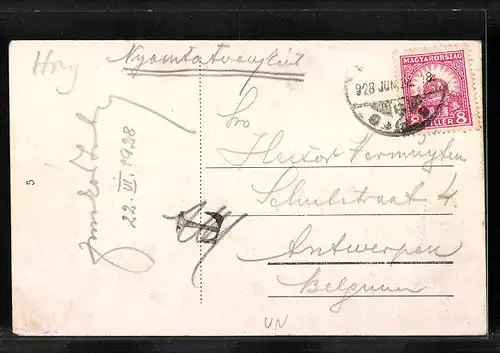 Nyomtatványként
MAGYARORSZÁG
8 FILLÉR 8
928 JUN.
Pro
Hector Vermuyten
Schulstraat 4.
Antwerpen
Belgium
22. VI. 1928
5
T
UN